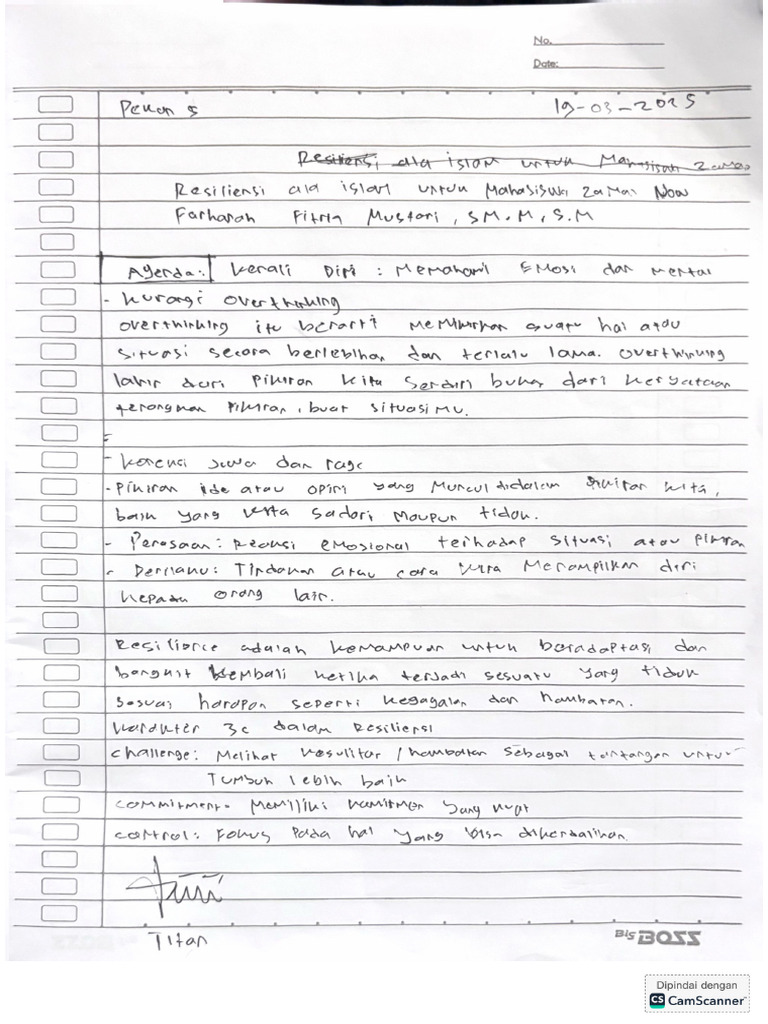 No.
Date:
Pekan 5 19-03-2025
Resiliensi ala islam untuk Mahasiswa zaman
Resiliensi ala islam untuk Mahasiswa zaman Now
Farhanah Fitria Mustari, SM.M, S.M
Agenda: Kenali Diri : Memahami Emosi dan mental
- kurangi overthinking
overthinking itu berarti Memikirkan suatu hal atau
situasi secara berlebihan dan terlalu lama. overthinking
lahir dari pikiran kita sendiri bukan dari kenyataan
tenangkan pikiran, buat situasimu.
-
- koneksi jiwa dan raga
- pikiran ide atau opini yang Muncul didalam pikiran kita,
baik yang kita sadari Maupun tidak.
- Perasaan: Reaksi emosional terhadap situasi atau pikiran
- Perilaku: Tindakan atau cara kita Menampilkan diri
kepada orang lain.
Resilience adalah kemampuan untuk beradaptasi dan
bangkit kembali ketika terjadi sesuatu yang tidak
sesuai harapan seperti kegagalan dan hambatan.
karakter 3c dalam resiliensi
challenge: Melihat kesulitan / hambatan sebagai tantangan untuk
Tumbuh lebih baik
commitment: Memiliki komitmen yang kuat
control: Fokus pada hal yang bisa dikendalikan.
Titan
BIG BOSS
Dipindai dengan
CS CamScanner